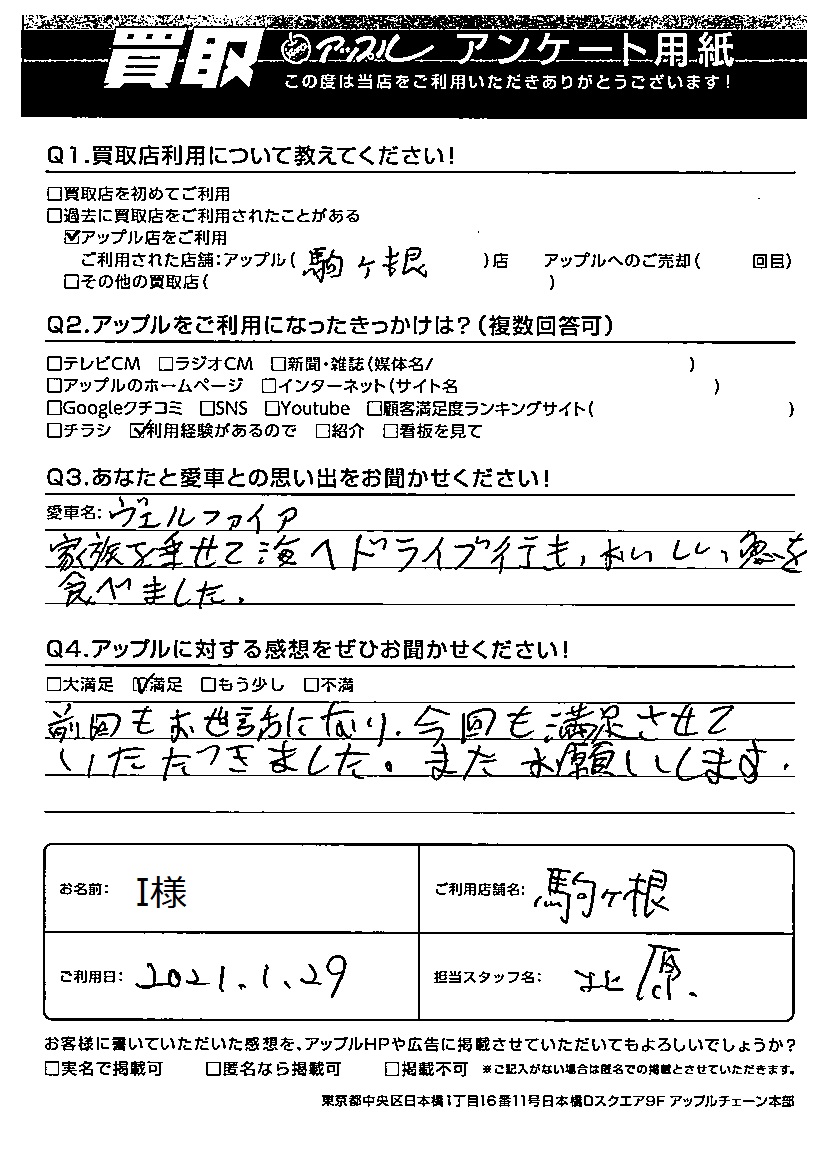 買取 アップル アンケート用紙
この度は当店をご利用いただきありがとうございます!
Q1.買取店利用について教えてください!
□買取店を初めてご利用
□過去に買取店をご利用されたことがある
☑アップル店をご利用
ご利用された店舗:アップル(駒ヶ根)店 アップルへのご売却( 回目)
□その他の買取店( )
Q2.アップルをご利用になったきっかけは?(複数回答可)
□テレビCM □ラジオCM □新聞・雑誌(媒体名/ )
□アップルのホームページ □インターネット(サイト名 )
□Googleクチコミ □SNS □Youtube □顧客満足度ランキングサイト( )
□チラシ ☑利用経験があるので □紹介 □看板を見て
Q3.あなたと愛車との思い出をお聞かせください!
愛車名:ヴェルファイア
家族を乗せて海へドライブ行き,おいしい魚を
食べました.
Q4.アップルに対する感想をぜひお聞かせください!
□大満足 ☑満足 □もう少し □不満
前回もお世話になり.今回も満足させて
いただきました。またお願いします.
お名前: I様 ご利用店舗名: 駒ヶ根
ご利用日: 2021.1.29 担当スタッフ名: 北原.
お客様に書いていただいた感想を、アップルHPや広告に掲載させていただいてもよろしいでしょうか?
□実名で掲載可 □匿名なら掲載可 □掲載不可 ※ご記入がない場合は匿名での掲載とさせていただきます。
東京都中央区日本橋1丁目16番11号日本橋Dスクエア9F アップルチェーン本部